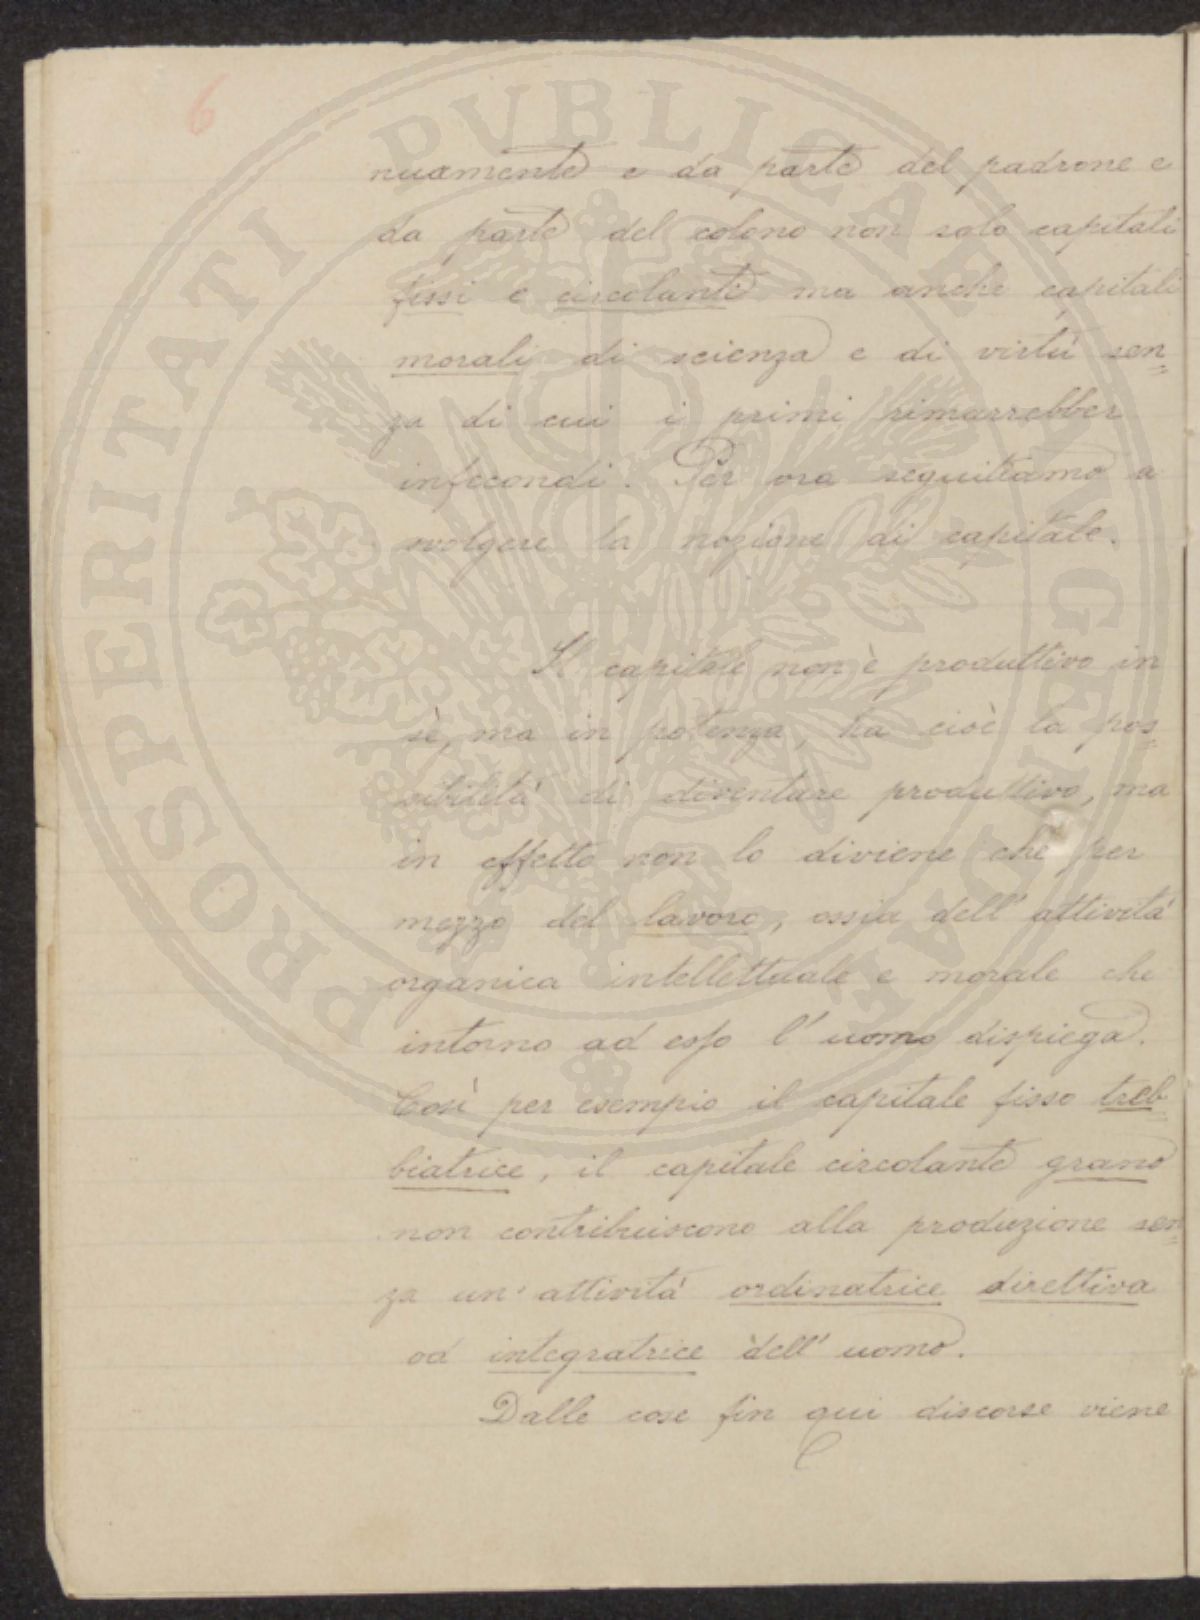 6
nuamente e da parte del padrone e
da parte del colono non solo capitali
fissi e circolanti ma anche capitali
morali di scienza e di virtù sen=
za di cui i primi rimarrebber
infecondi. Per ora seguitiamo a
svolgere la nozione di capitale.
Il capitale non è produttivo in
sè, ma in potenza, ha cioè la pos=
sibilità di diventare produttivo, ma
in effetto non lo diviene che per
mezzo del lavoro, ossia dell'attività
organica intellettuale e morale che
intorno ad esso l'uomo dispiega.
Così per esempio il capitale fisso treb
biatrice, il capitale circolante grano
non contribuiscono alla produzione sen=
za un'attività ordinatrice direttiva
od integratrice dell'uomo.
Dalle cose fin qui discorse viene
PROSPERITATI PVBLICAE AVGENDAE